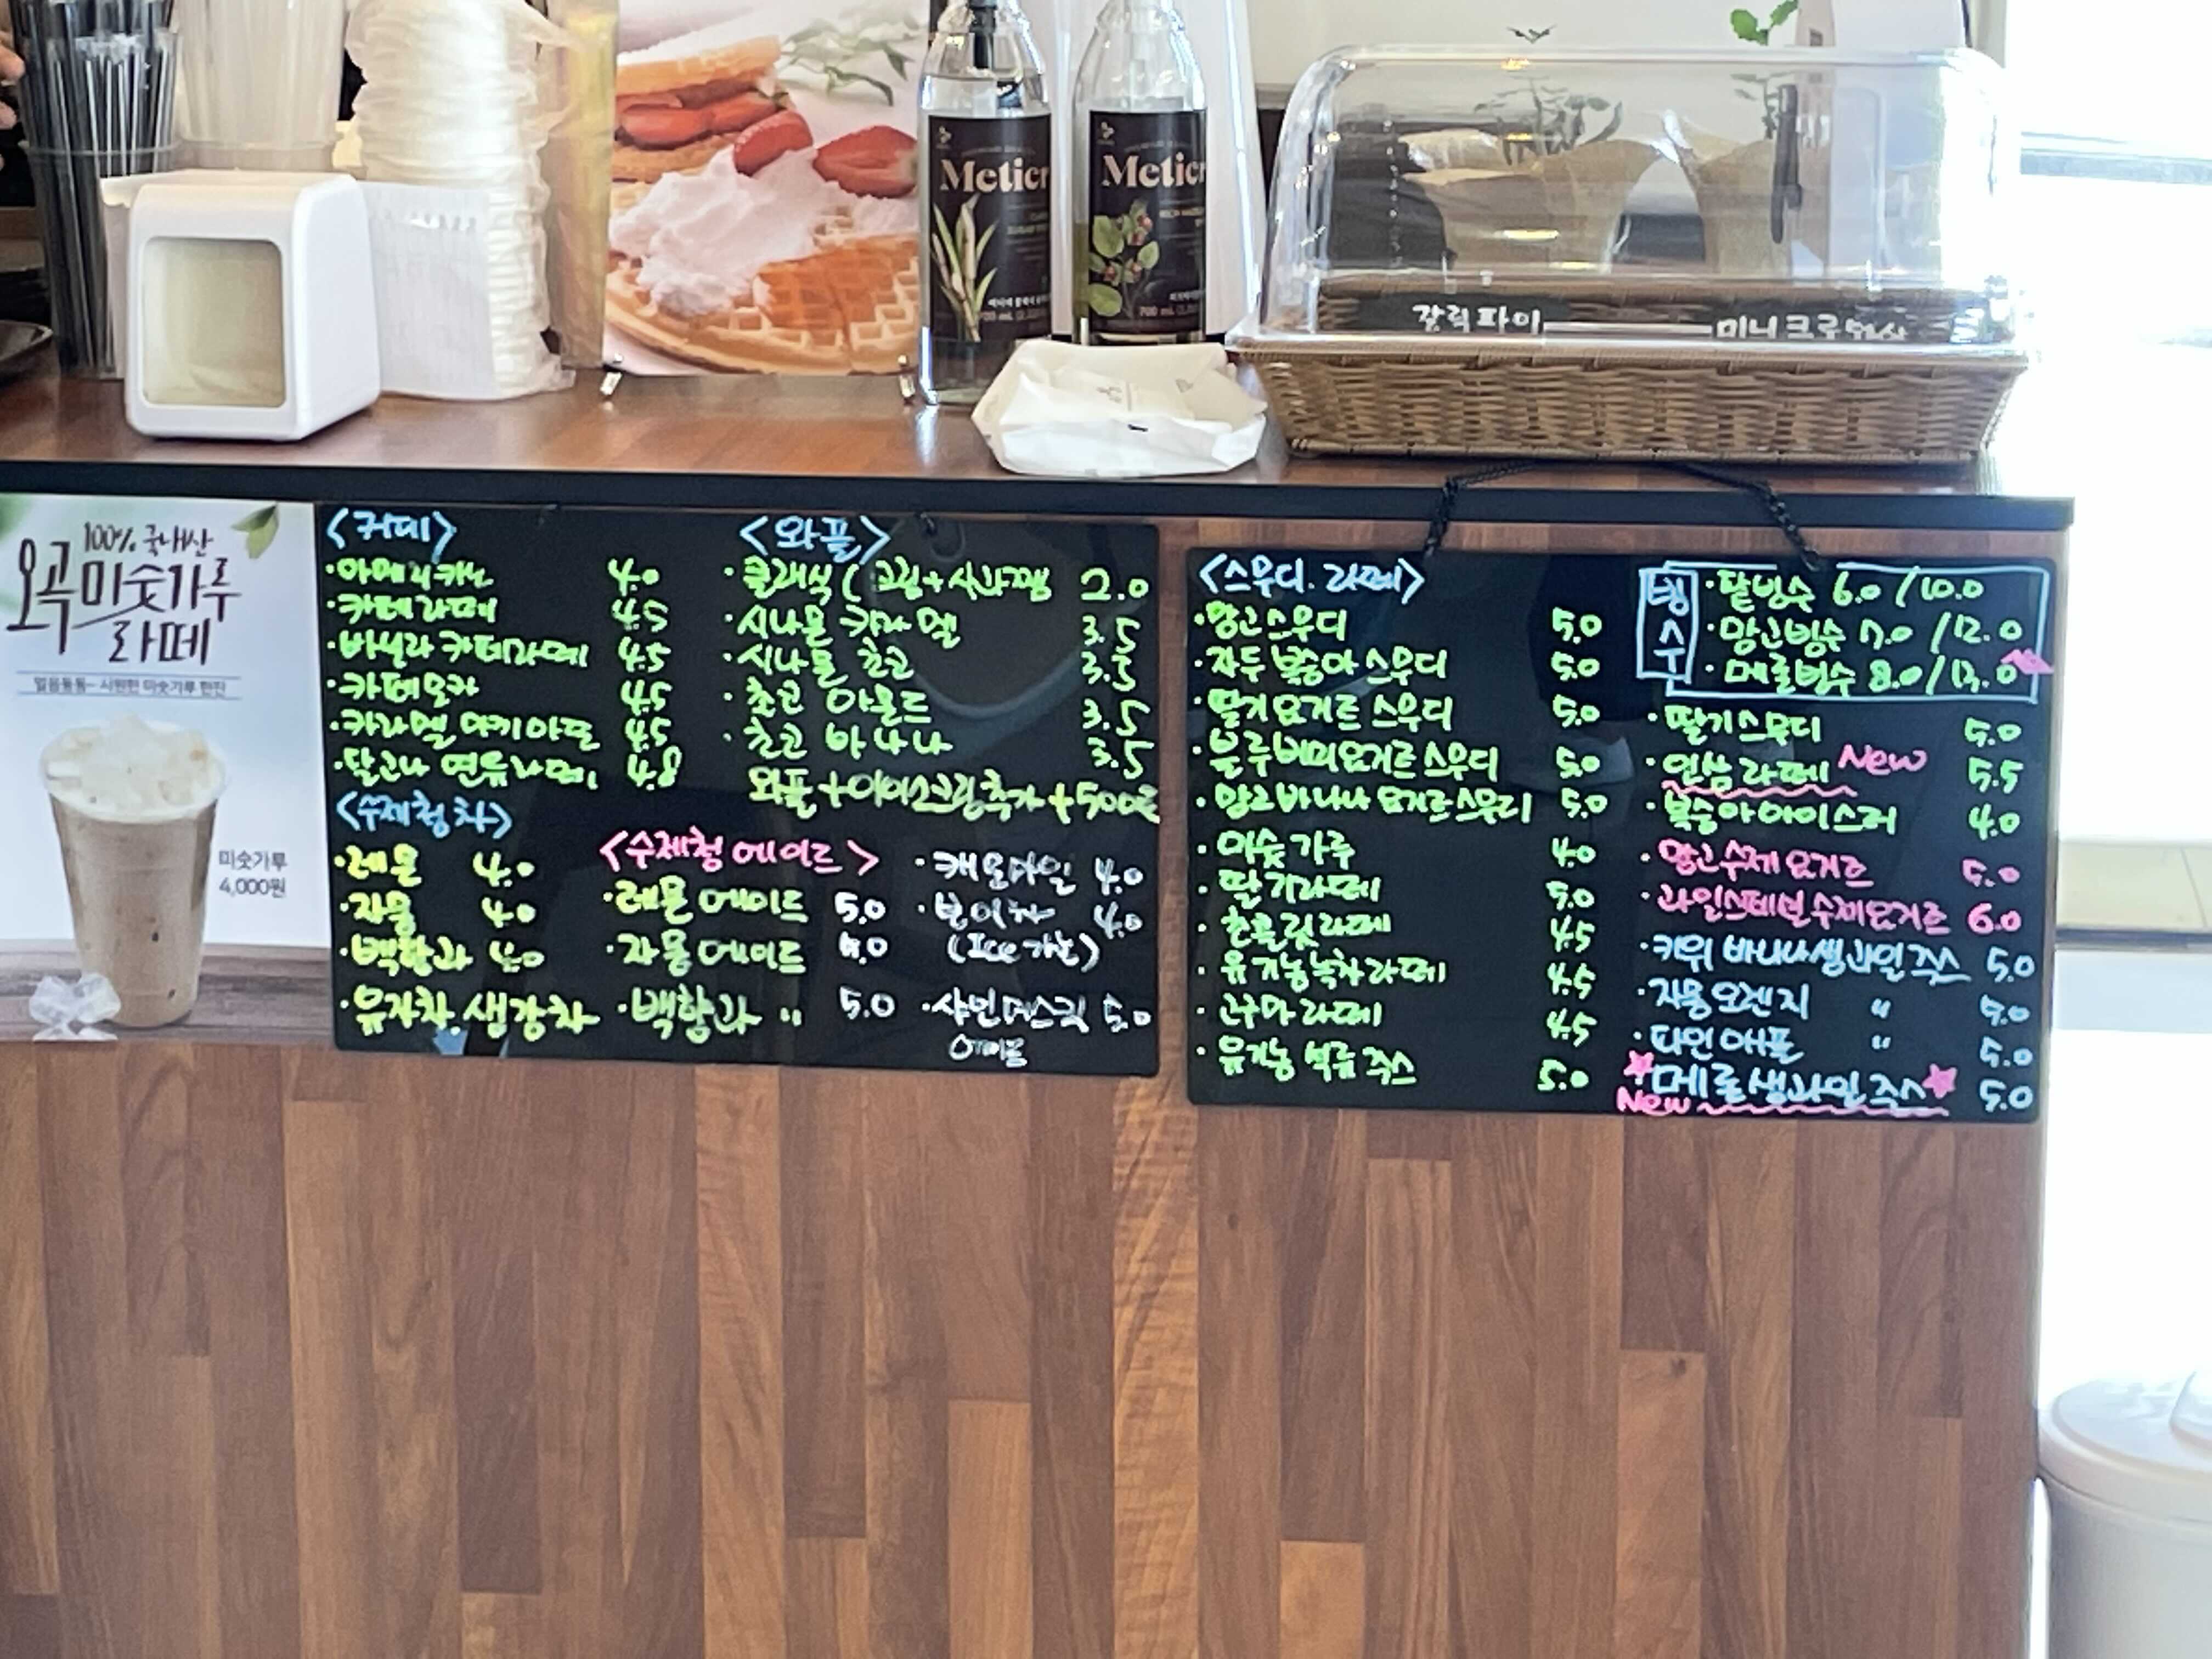 Metier
700 mL
Metier
700 mL
갈릭파이
미니크루와상
100% 국내산
오곡미숫가루
라떼
얼음동동~ 시원한 미숫가루 한잔
미숫가루
4,000원
<커페>
·아메리카노 4.0
·카페라떼 4.5
·바닐라 카페라떼 4.5
·카페모카 4.5
·카라멜 마키아또 4.5
·달고나 연유라떼 4.8
<와플>
·클래식 (크림+사과잼 2.0
·시나몬 카라멜 3.5
·시나몬 초코 3.5
·초코 아몬드 3.5
·초코 바나나 3.5
와플+아이스크림추가+500원
<수제청차>
·레몬 4.0
·자몽 4.0
·백향과 4.0
·유자차.생강차
<수제청 에이드>
·레몬 에이드 5.0
·자몽 에이드 5.0
·백향과 " 5.0
·캐모마일 4.0
4.0
(Ice 가능)
·샤인머스켓 5.0
<스무디.라떼>
·망고스무디 5.0
·자두 복숭아 스무디 5.0
·딸기 요거트 스무디 5.0
·블루베리요거트 스무디 5.0
·망고바나나 요거트스무디 5.0
·미숫가루 4.0
·딸기라떼 5.0
·초콜릿라떼 4.5
·유기농녹차라떼 4.5
·고구마라떼 4.5
·유기농 석류 주스 5.0
빙수
·팥빙수 6.0 / 10.0
·망고빙수 7.0 / 12.0
·메론빙수 8.0 / 13.0
·딸기스무디 5.0
·인삼라떼 New 5.5
·복숭아아이스티 4.0
·망고수제 요거트 5.0
·과일스테번 수제요거트 6.0
·키위 바나나생과일 주스 5.0
·자몽오렌지 " 5.0
·파인애플 " 5.0
메론생과일 주스 5.0
New